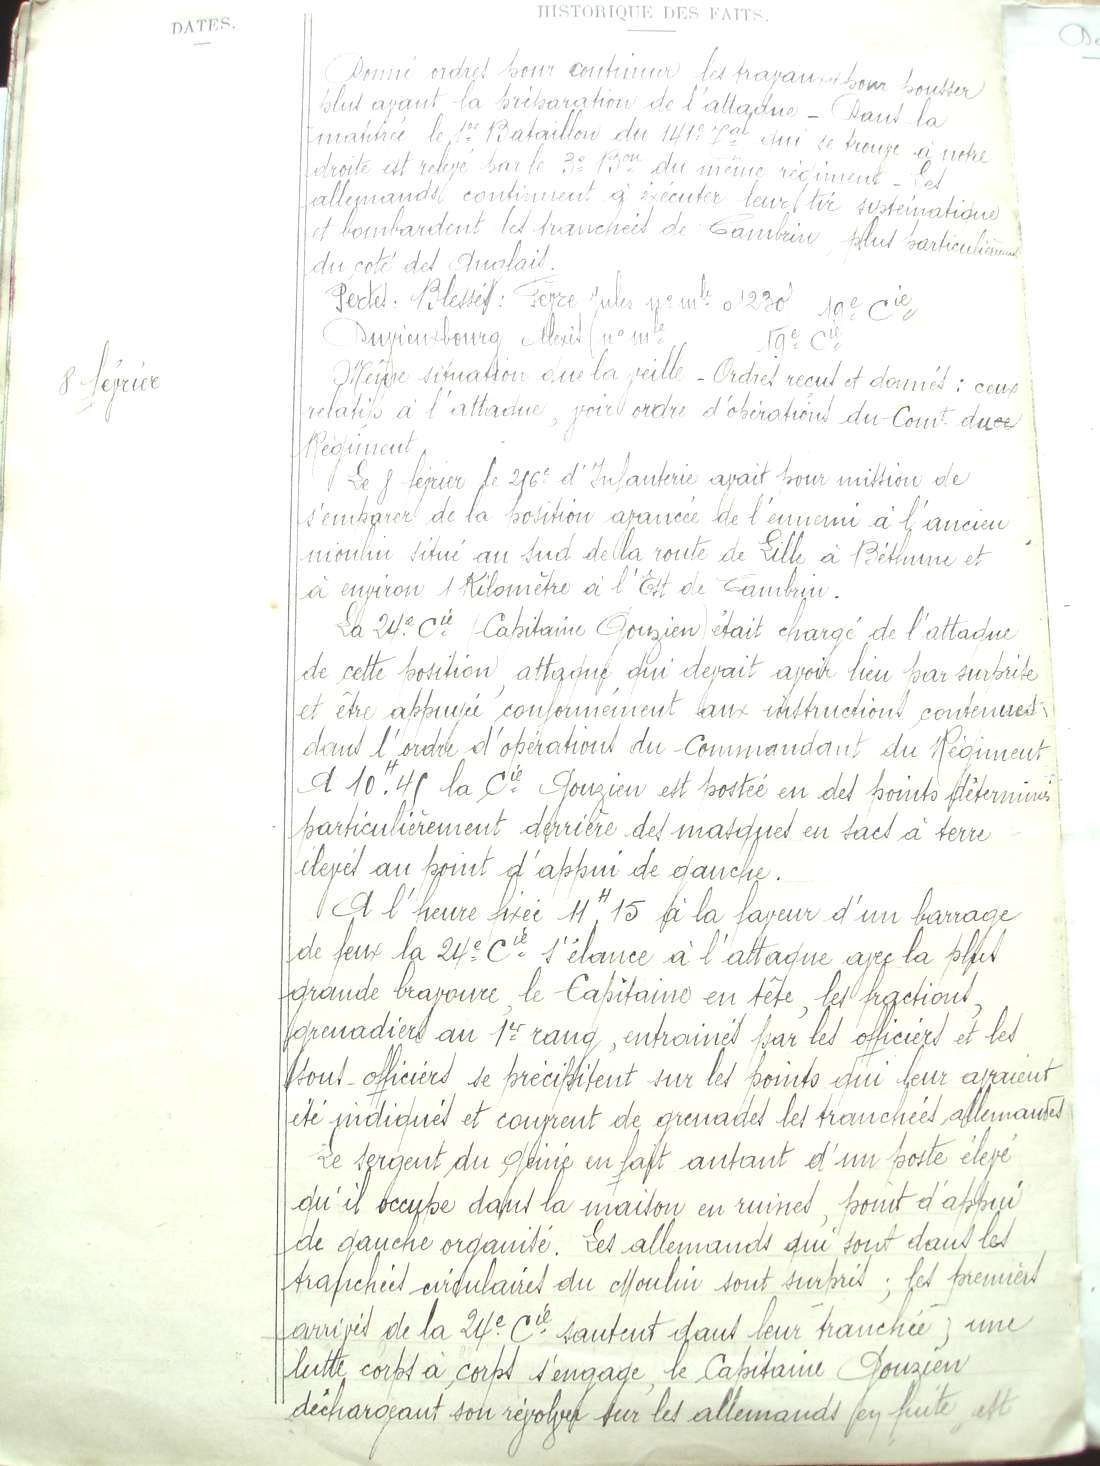 DATES.
HISTORIQUE DES FAITS.
Donné ordres pour continuer les travaux pour pousser
plus avant la préparation de l'attaque _ Dans la
matinée le 1er Bataillon du 141e Ial qui se trouve à notre
droite est relevé par le 3e Bon du même régiment _ Les
allemands continuent à éxécuter leur tir systématique
et bombardent les tranchées de Cambrin, plus particulièrement
du coté des Anglais.
Pertes. Blessés : Jules no mle 01230 19e Cie
Alexis (no mle 19e Cie
8 février
Même situation que la veille _ Ordres reçus et donnés : ceux
relatifs à l'attaque, voir ordre d'opérations du Comt du
Régiment
Le 8 février le 256e d'Infanterie avait pour mission de
s'emparer de la position avancée de l'ennemi à l'ancien
moulin situé au sud de la route de Lille à Béthune et
à environ 1 Kilomètre à l'Est de Cambrin.
La 24e Cie (Capitaine Gouzien) était chargé de l'attaque
de cette position, attaque qui devait avoir lieu par surprise
et être appuyée conformément aux instructions contenues
dans l'ordre d'opérations du Commandant du Régiment
A 10H.45 la Cie Gouzien est postée en des points déterminés
particulièrement derrière des masques en sacs à terre
élevés au point d'appui de gauche.
A l'heure fixée 11H.15 à la faveur d'un barrage
de feux la 24e Cie s'élance à l'attaque avec la plus
grande bravoure, le Capitaine en tête, les fractions,
grenadiers au 1er rang, entrainés par les officiers et les
sous-officiers se précipitent sur les points qui leur avaient
été indiqués et couvrent de grenades les tranchées allemandes
Le sergent du Génie en fait autant d'un poste élevé
qu'il occupe dans la maison en ruines, point d'appui
de gauche organisé. Les allemands qui sont dans les
tranchées circulaires du Moulin sont surpris ; les premiers
arrivés de la 24e Cie sautent dans leur tranchée ; une
lutte corps à corps s'engage, le Capitaine Gouzien
déchargeant son révolver sur les allemands en fuite est